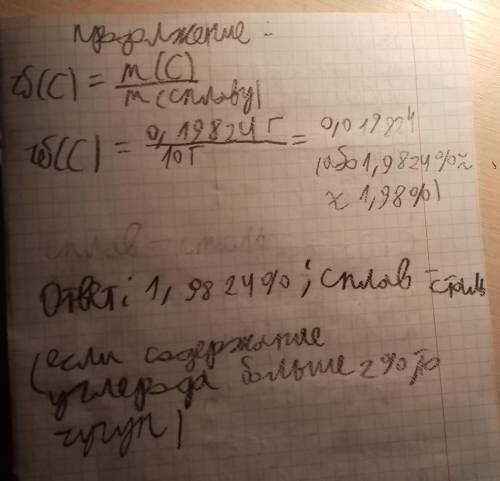 продолжение:
ω(C) = m(C) / m(сплаву)
ω(C) = 0,19824 г / 10 г = 0,019824
либо 1,9824% ≈
≈ 1,98%)
сплав - сталь
Ответ: 1,9824%; сплав - сталь
(если содержание
углерода больше 2% то
чугун)